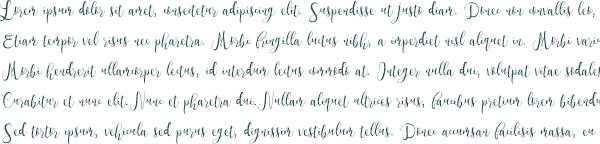 Lorem ipsum dolor sit amet, consectetur adipiscing elit. Suspendisse ut justo diam. Donec non convallis leo,
Etiam tempor vel risus nec pharetra. Morbi fringilla luctus nibh, a imperdiet nisl aliquet in. Morbi variu
Morbi hendrerit ullamcorper lectus, id interdum lectus commodo at. Integer nulla dui, volutpat vitae sodales
Curabitur et nunc elit. Nunc et pharetra dui. Nullam aliquet ultrices risus, faucibus pretium lorem bibendu
Sed tortor ipsum, vehicula sed purus eget, dignissim vestibulum tellus. Donec accumsan facilisis massa, eu